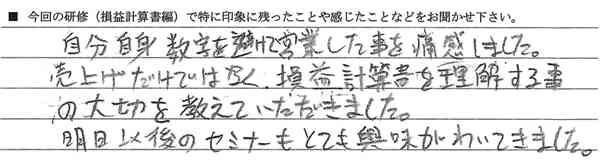 ■ 今回の研修（損益計算書編）で特に印象に残ったことや感じたことなどをお聞かせ下さい。
自分自身数字を避けて営業した事を痛感しました。
売上げだけではなく、損益計算書を理解する事
の大切を教えていただきました。
明日以後のセミナーもとても興味がわいてきました。